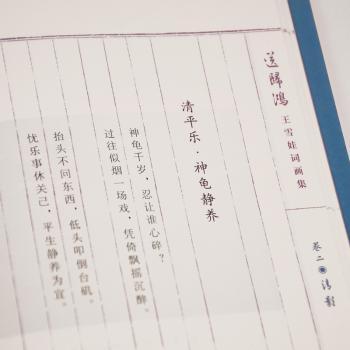 送歸鴻
王雪娃词画集
卷二◉清影
清平乐·神龟静养
神龟千岁，忍让谁心碎？
过往似烟一场戏，凭倚飘摇沉醉。
抬头不问东西，低头叩倒台矶。
忧乐事休关己，平生静养为宜。